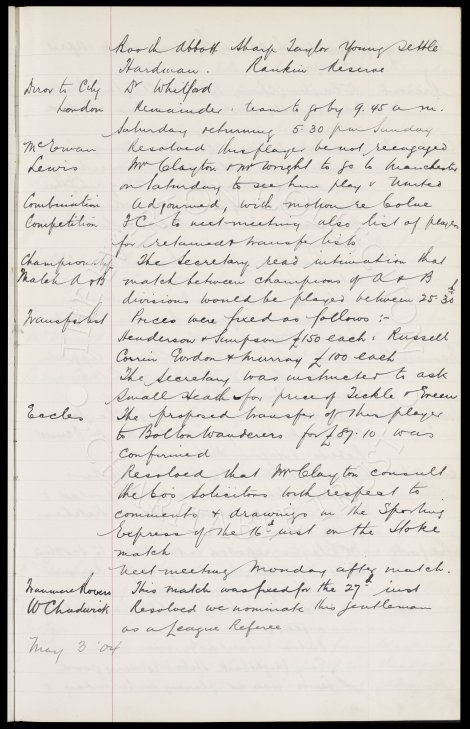 Booth Abbott Sharp Taylor Young Settle
Hardman. Rankin Reserve
Diror to City Dr Whitford
London Remainder. team to go by 9.45 a.m.
Saturday returning 5.30 p.m Sunday
McEwan Resolved this player be not reengaged
Lewis Mr Clayton & Mr Wright to go to Manchester
on Saturday to see him play v United
Combination Adjourned, with motion re Colne
Competition FC to next meeting also list of players
for retained & transfer lists
Championship The Secretary read intimation that
Match A v B match between champions of A & B
divisions would be played between 25-30th
Transfer list Prices were fixed as follows :-
Henderson & Simpson £150 each: Russell
Corrin Gordon & Murray £100 each
The Secretary was instructed to ask
Small Heath for price of Tickle & Green
Eccles The proposed transfer of this player
to Bolton Wanderers for £87.10 was
confirmed
Resolved that Mr Clayton consult
the Cos Solicitors with respect to
comments & drawings in the Sporting
Express of the 16th inst on the Stoke
match
Next meeting Monday after match.
Tranmere Rovers This match was fixed for the 27th inst
W Chadwick Resolved we nominate this gentleman
as a League Referee
May 3 '04